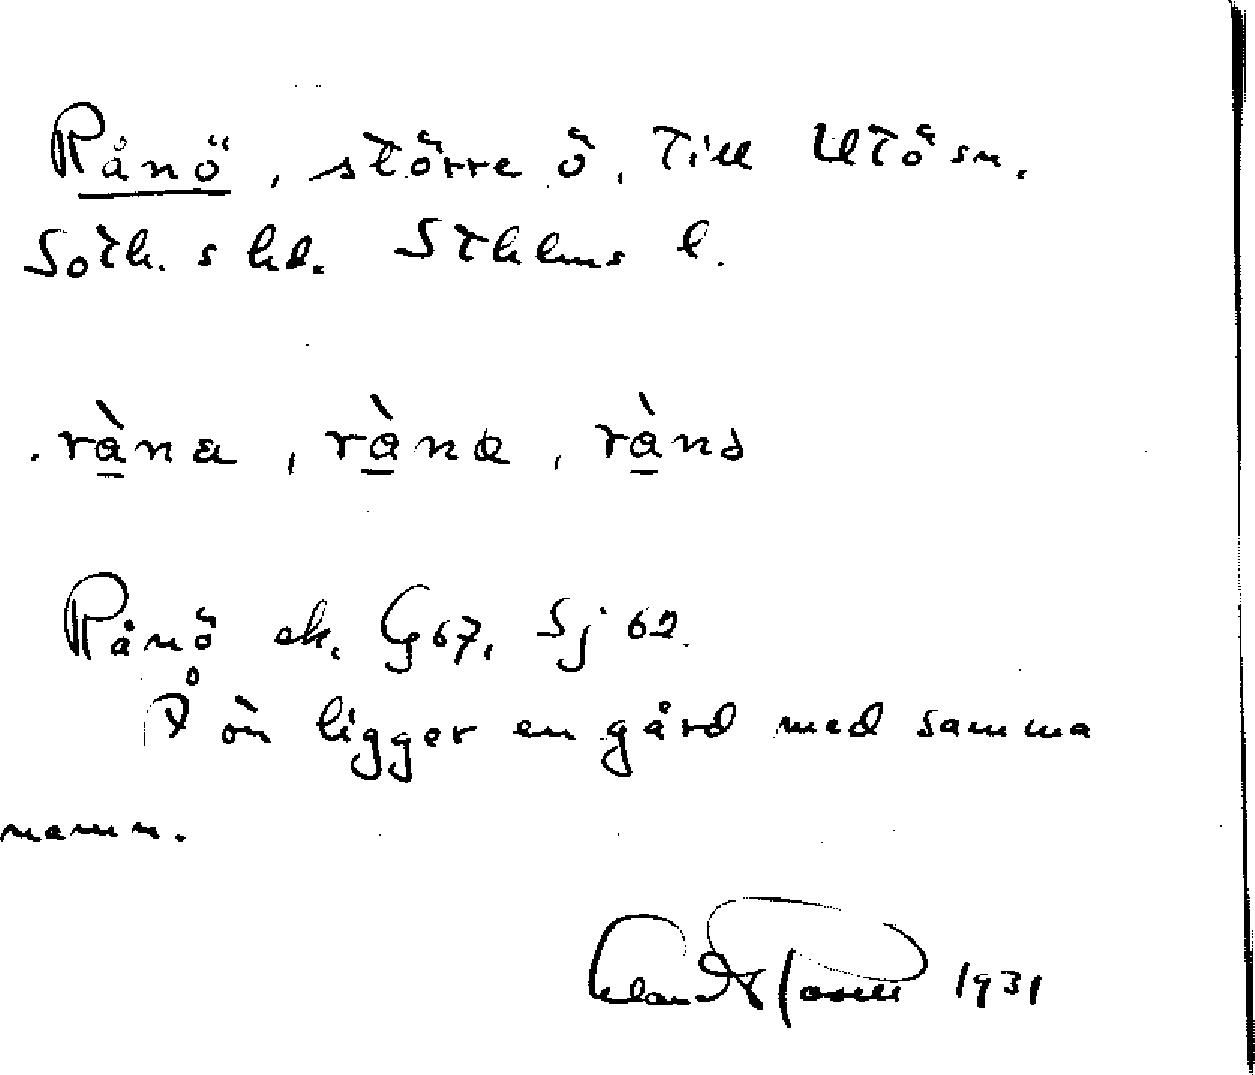 Rånö, större ö, till Utö sn.
Soth. s hd. Sthlms l.
. rà̱na, rà̱na, rà̱nə
Rånö ek. G 67, Sj 62.
På ön ligger en gård med samma
namn.
1931